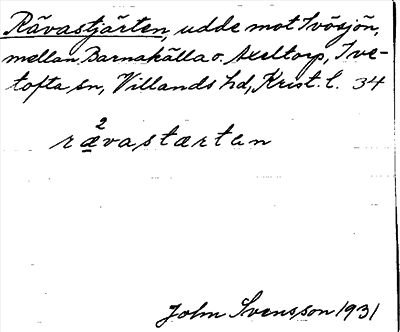 Rävastjärten, udde mot Ivösjön,
mellan Barnakälla o. Axeltorp, Ive-
tofta sn, Villands hd, Krist. l. 34
2
rævastærten
John Svensson 1931